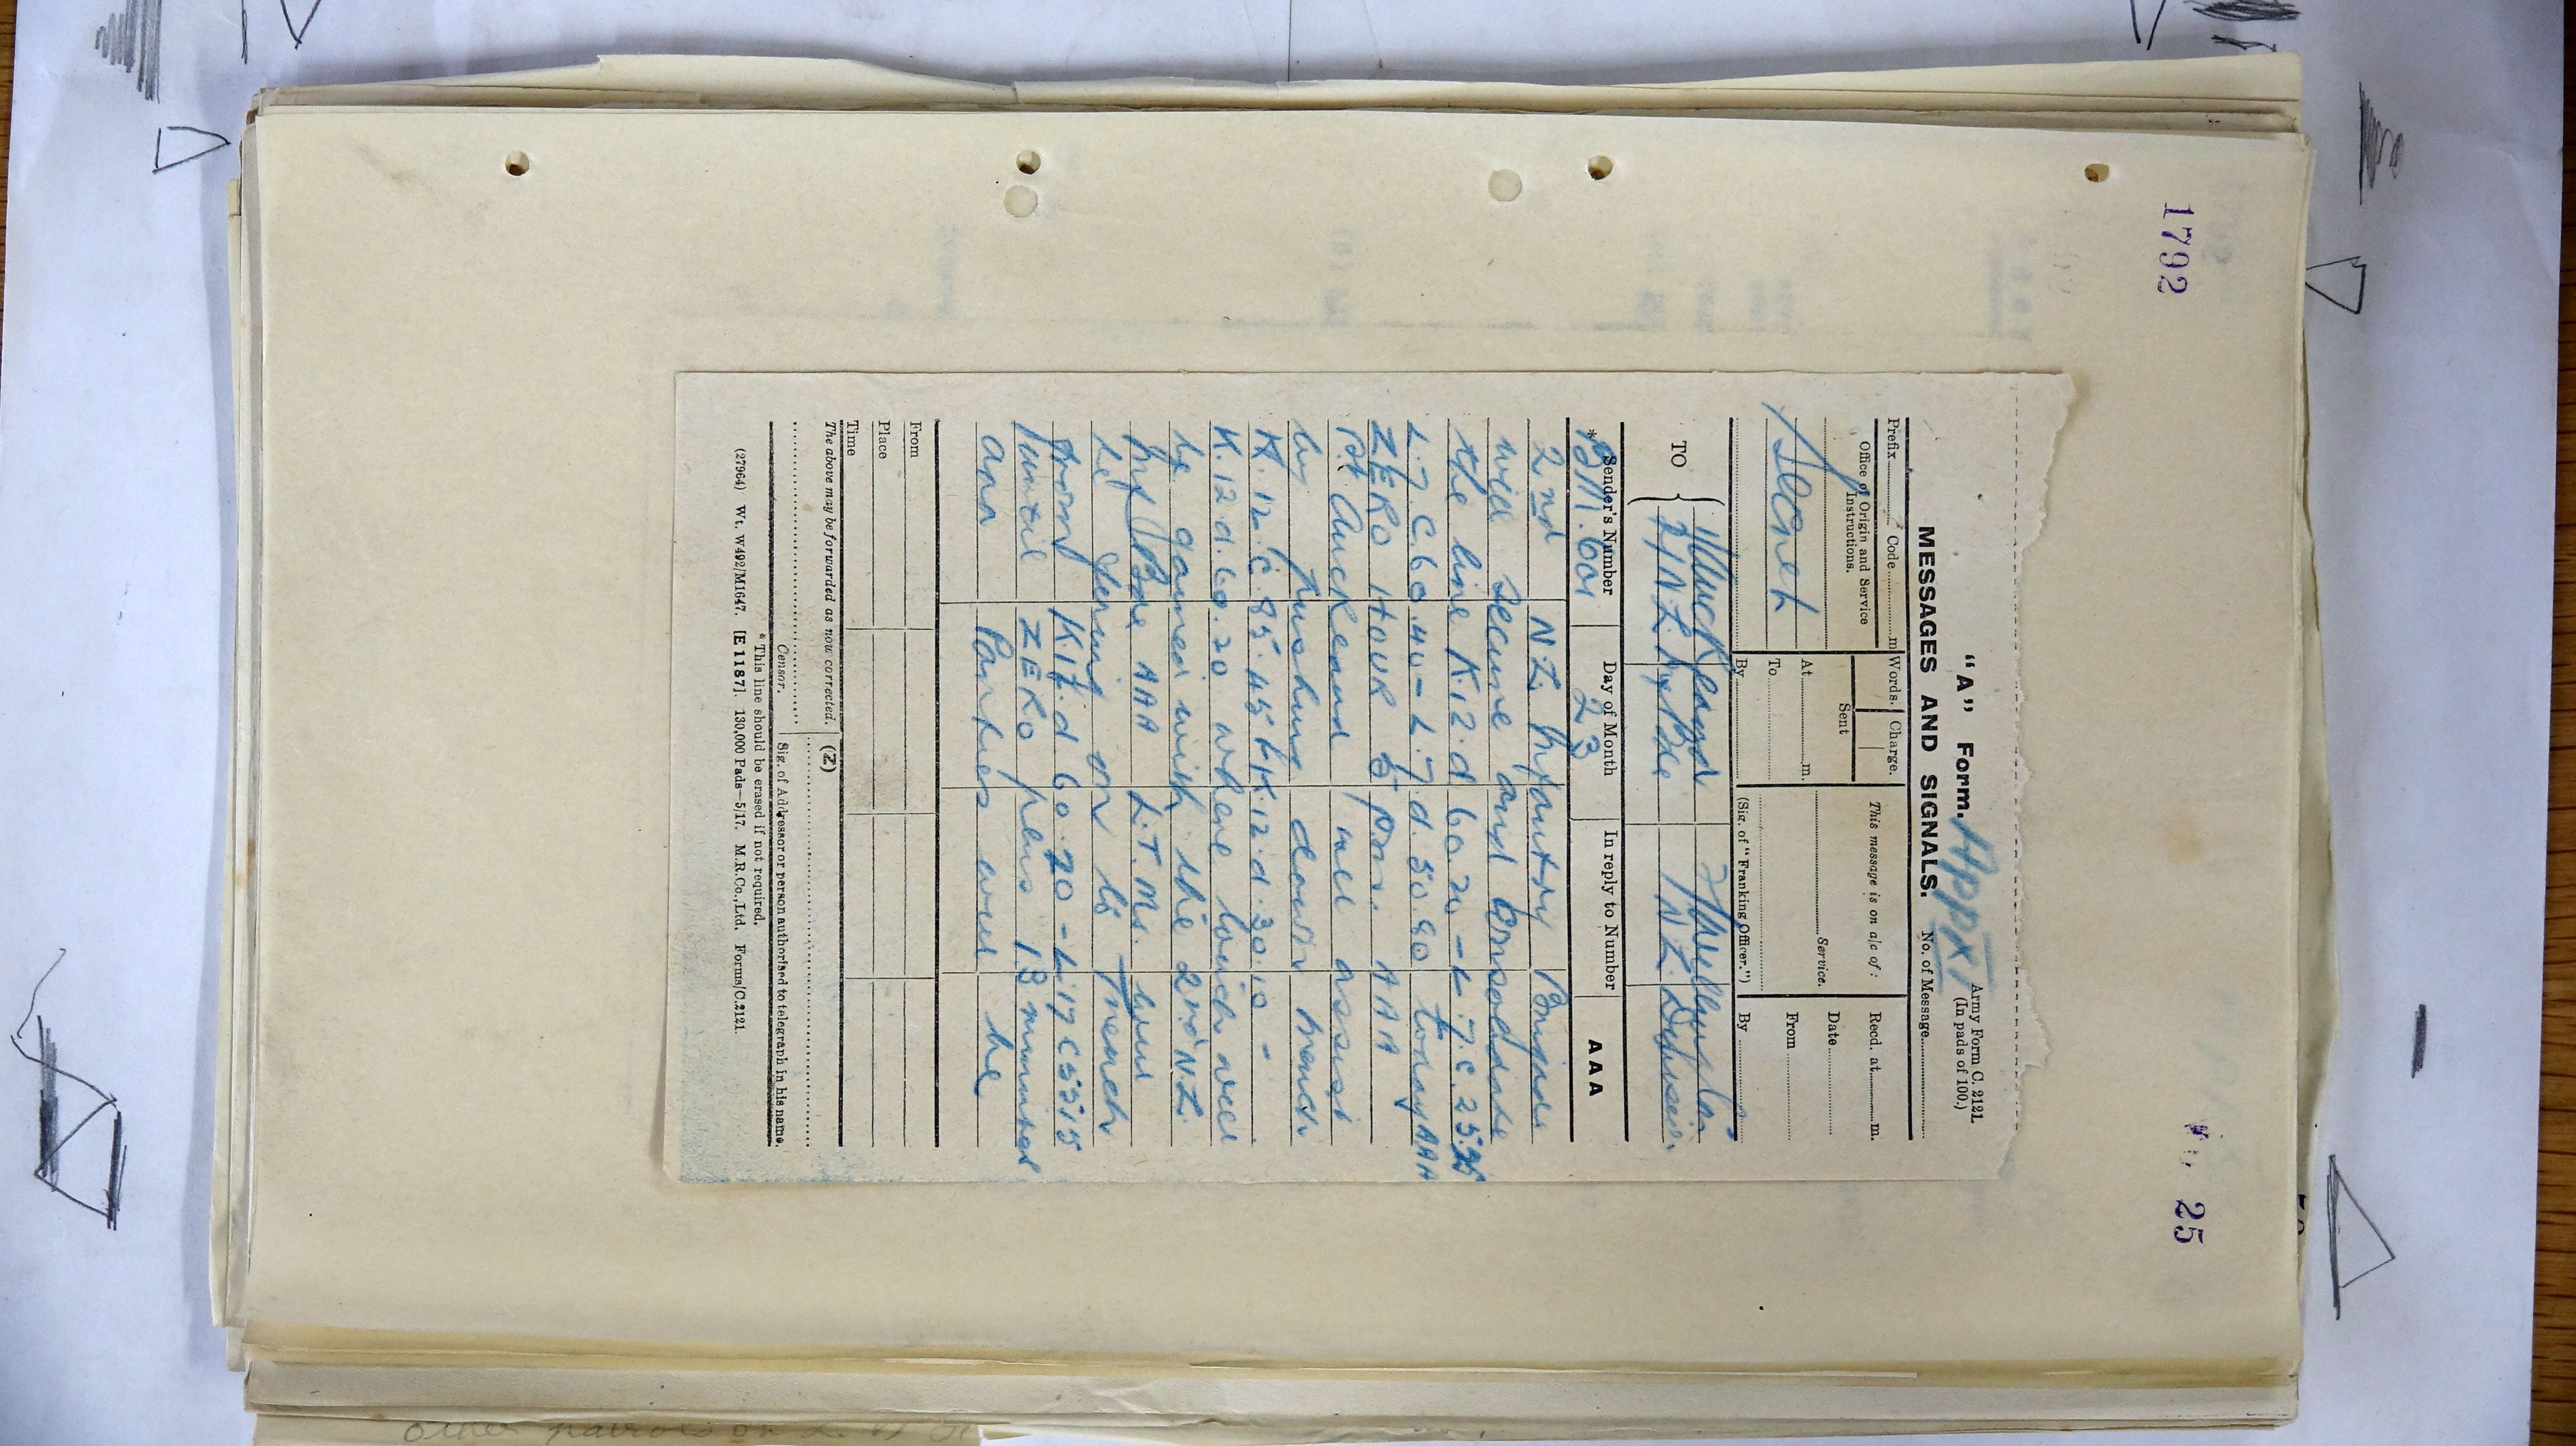 1792
25
"A" Form.
Appx 1
Army Form C. 2121
(In pads of 100.)
MESSAGES AND SIGNALS.
No. of Message
Prefix Code m
Words.
Charge.
This message is on a/c of:
Recd. at m.
Office of Origin and Service Instructions.
Secret
Sent
At m.
To
By
Service.
(Sig. of "Franking Officer.")
Date
From
By
TO
Auckland
2/NZ Inf Bde
NZ Division
Sender's Number
Day of Month
In reply to Number
AAA
*BM.601
23
2nd NZ Infantry Brigade
will secure and consolidate
the line K12.d 60.20 - L.7.c.25.35
L.7.C.60.40 - L.7.d.50.80 today AAA
ZERO HOUR 5 pm. AAA
Auckland will assist
by pushing down trench
K.12.c.85.45 K.12.d.30.10 -
K.12.d.60.20 where touch will
be gained with the 2nd N.Z.
Inf Bde AAA L.T.Ms. will
be firing on to Trench
from
until ZERO plus 13 minutes
aaa Parties will be
From
Place
Time
The above may be forwarded as now corrected.
(Z)
Censor.
Sig. of Addressor or person authorised to telegraph in his name.
* This line should be erased if not required.
(27964) Wt. W492/M1647. [E 1187]. 130,000 Pads—5/17. M.R.Co.,Ltd. Forms/C.2121.